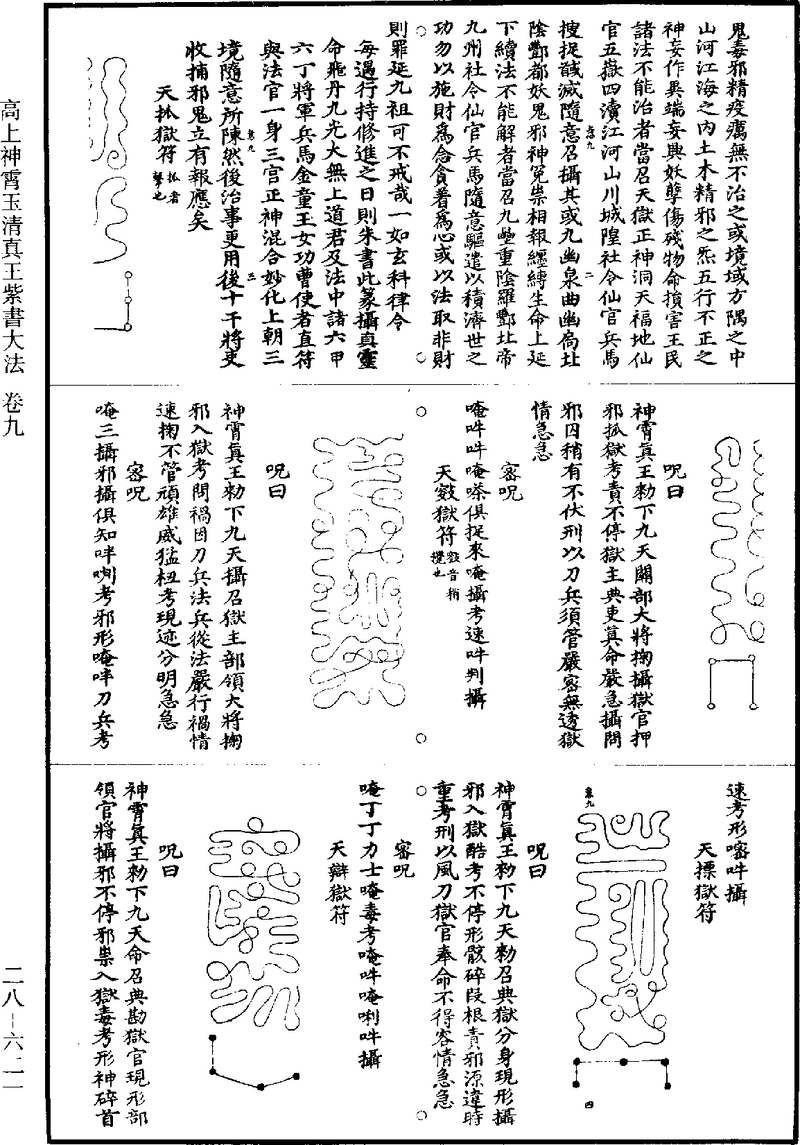 高上神霄玉清真王紫書大法 卷九
二八–六二一
鬼毒邪精疫癘無不治之或境域方隅之中
山河江海之內土木精邪之炁五行不正之
神妄作異端妄興妖孽傷殘物命損害王民
諸法不能治者當召天獄正神洞天福地仙
官五嶽四瀆江河山川城隍社令仙官兵馬
卷九
二
搜捉馘滅隨意召攝其或九幽泉曲幽扃壯
陰酆都妖鬼邪神冤祟相報纏縛生命上延
下續法不能解者當召九壘重陰羅酆北帝
九州社令仙官兵馬隨意驅遣以積濟世之
功勿以施財為念貪著為心或以法取非財
則罪延九祖可不戒哉一如玄科律令
每遇行持修進之日則朱書此篆攝真靈
命飛丹九光大無上道君及法中諸六甲
六丁將軍兵馬金童玉女功曹使者直符
與法官一身三宮正神混合妙化上朝三
卷九
三
境隨意所陳然後治事更用後十千將吏
收捕邪鬼立有報應矣
天抓獄符
抓者
擊也
呪曰
神霄真王勑下九天關部大將掬攝獄官押
邪抓獄考責不停獄主典吏真命嚴急攝問
邪囚稍有不伏刑以刀兵須管嚴密無透獄
情急急
密呪
唵吽吽唵嗏俱捉來唵攝考速吽判攝
天㲉獄符
㲉音稍
攪也
呪曰
神霄真王勑下九天攝召獄主部領大將掬
邪入獄考問禍因刀兵法兵從法嚴行禍情
速掬不管頑雄威猛杻考現迹分明急急
密呪
唵三攝邪攝俱知吽唎考邪形唵吽刀兵考
速考形嚼吽攝
天摽獄符
卷九
四
呪曰
神霄真王勑下九天勑召典獄分身現形攝
邪入獄酷考不停形骸碎段根責邪源違時
重考刑以風刀獄官奉命不得容情急急
密呪
唵丁丁力士唵毒考唵吽唵唎吽攝
天辯獄符
呪曰
神霄真王勑下九天命召典勘獄官現形部
領官將攝邪不停邪祟入獄毒考形神碎首